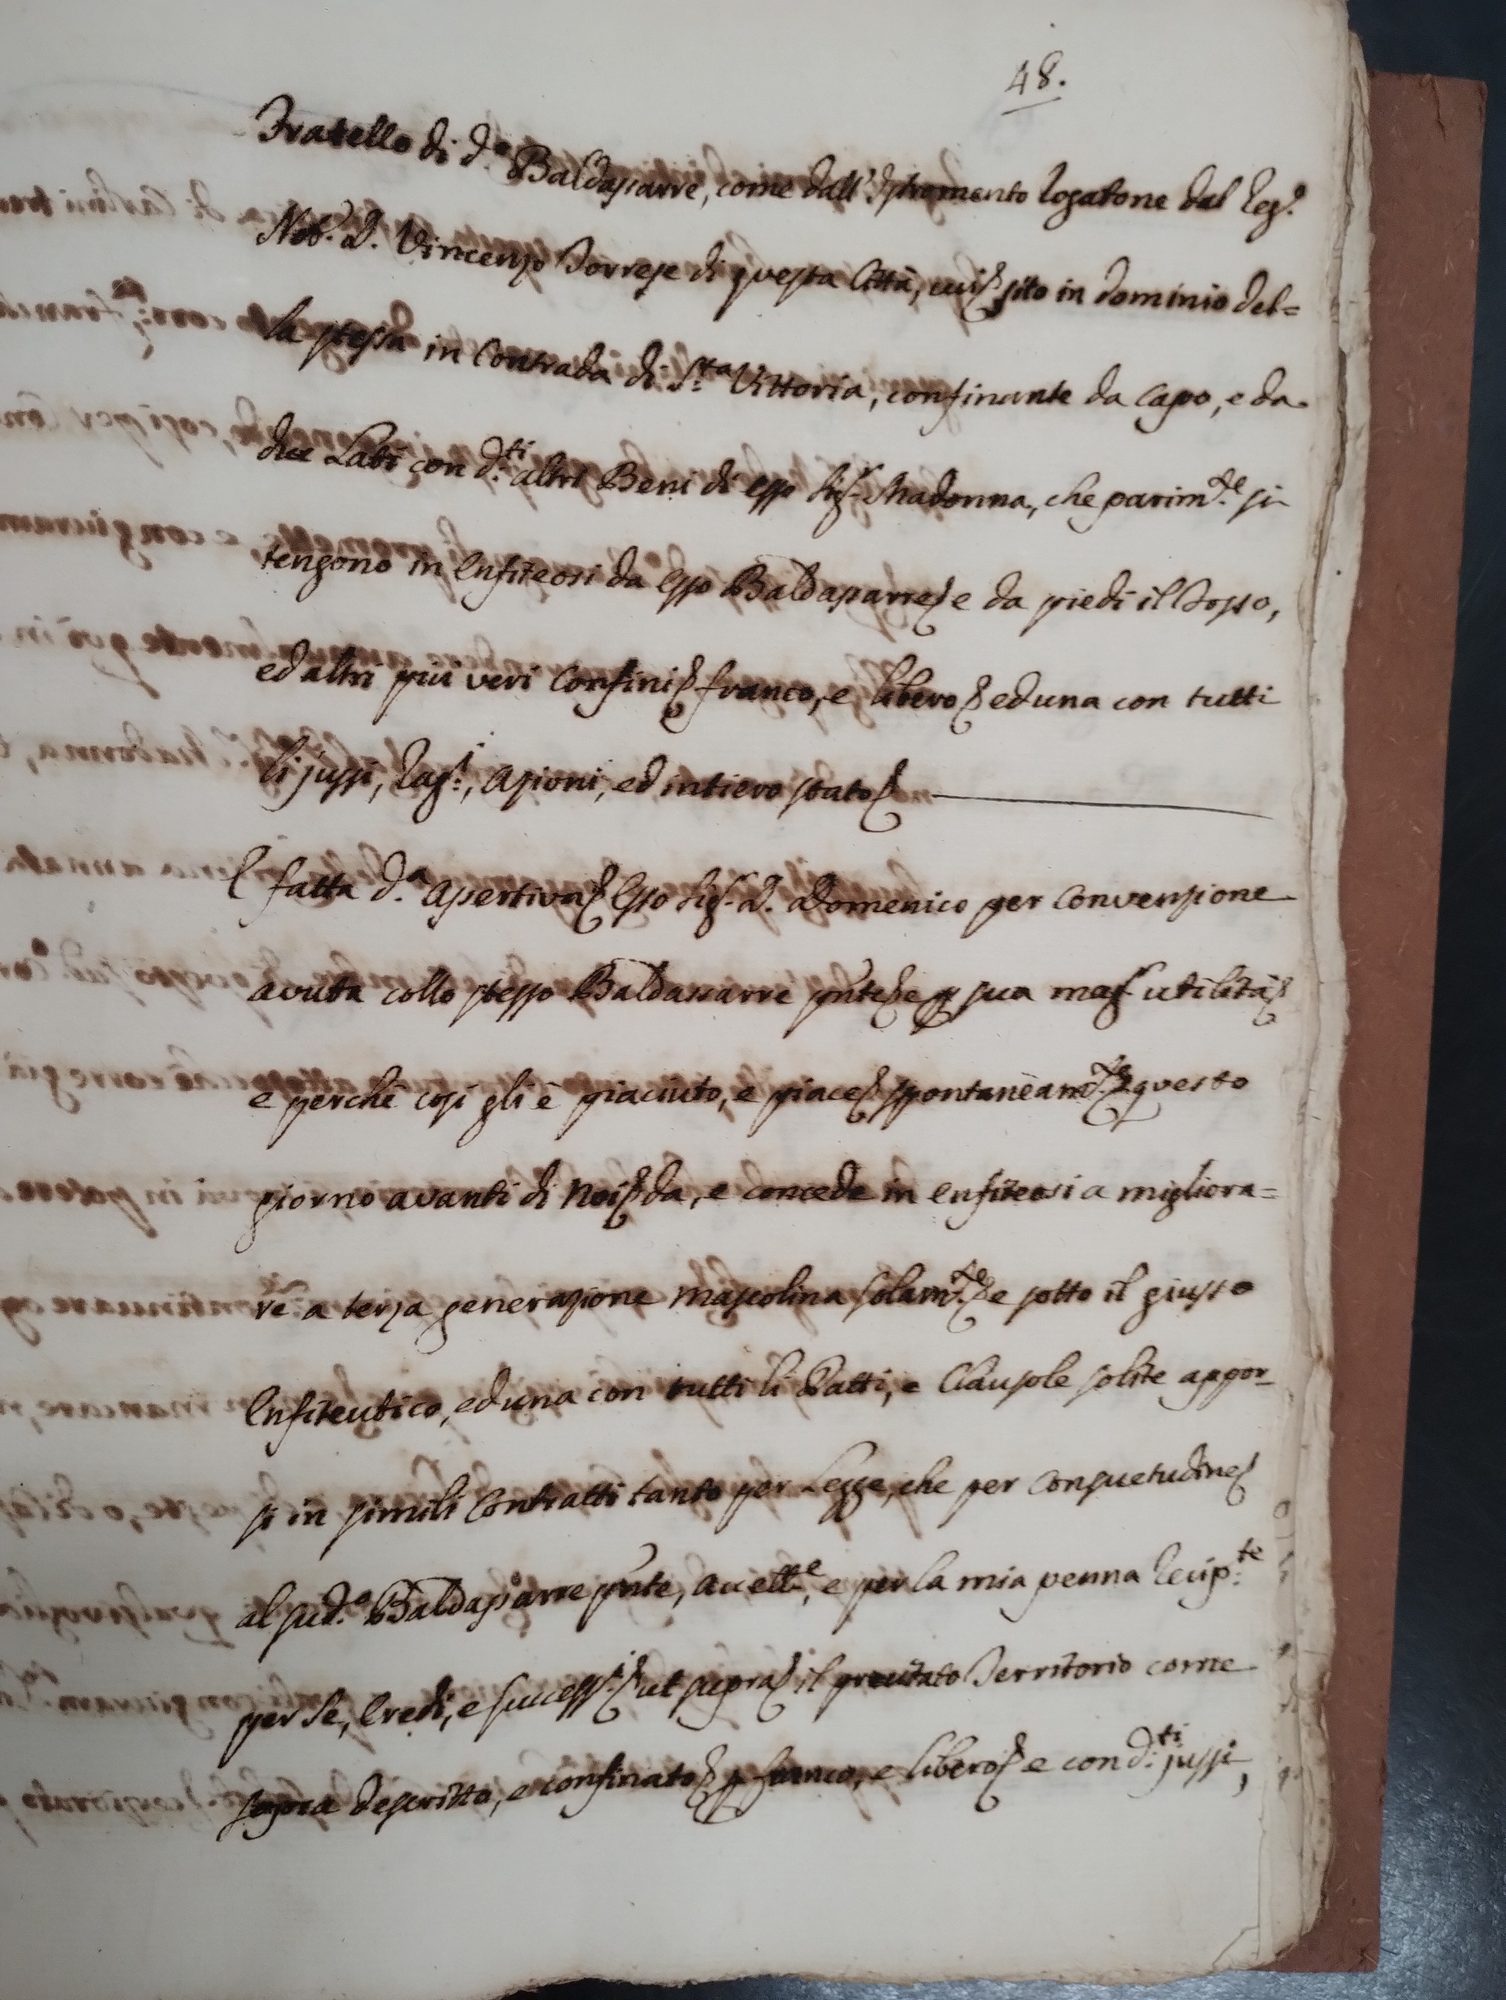 48.
Fratello di d.º Baldassarre, come dall' Istromento rogatone dal Reg.º
Not.r D. Vincenzo Torrese di questa Città, sito in dominio del=
la stessa in Contrada di S.ta Vittoria, confinante da Capo, e da
due Lati con d.ti altri Beni di esso Sig.r Madonna, che parim.te si
tengono in Enfiteosi da esso Baldassarre e da piedi il Fosso,
ed altri più veri Confini franco, e libero ed una con tutti
li jussi, Rag.i, Azioni, ed intiero stato
E fatta d.a Asertiva Esso Sig.r D. Domenico per Convenzione
avuta collo stesso Baldassarre pnte e p sua mag.r utilità
e perchè così gli è piaciuto, e piace spontaneam.te questo
giorno avanti di Noi da, e concede in enfiteosi a migliora=
re a terza generazione mascolina solam.te e sotto il giusto
Enfiteutico, ed una con tutti li Patti, e Clausole solite appor=
si in simili Contratti tanto per Legge, che per Consuetudine
al sud.º Baldassarre pnte, accett.e, e per la mia penna Recip.te
per Se, Eredi, e Success.i ut supra il precitato Territorio come
sopra descritto, e confinato franco, e libero e con d.ti jussi,